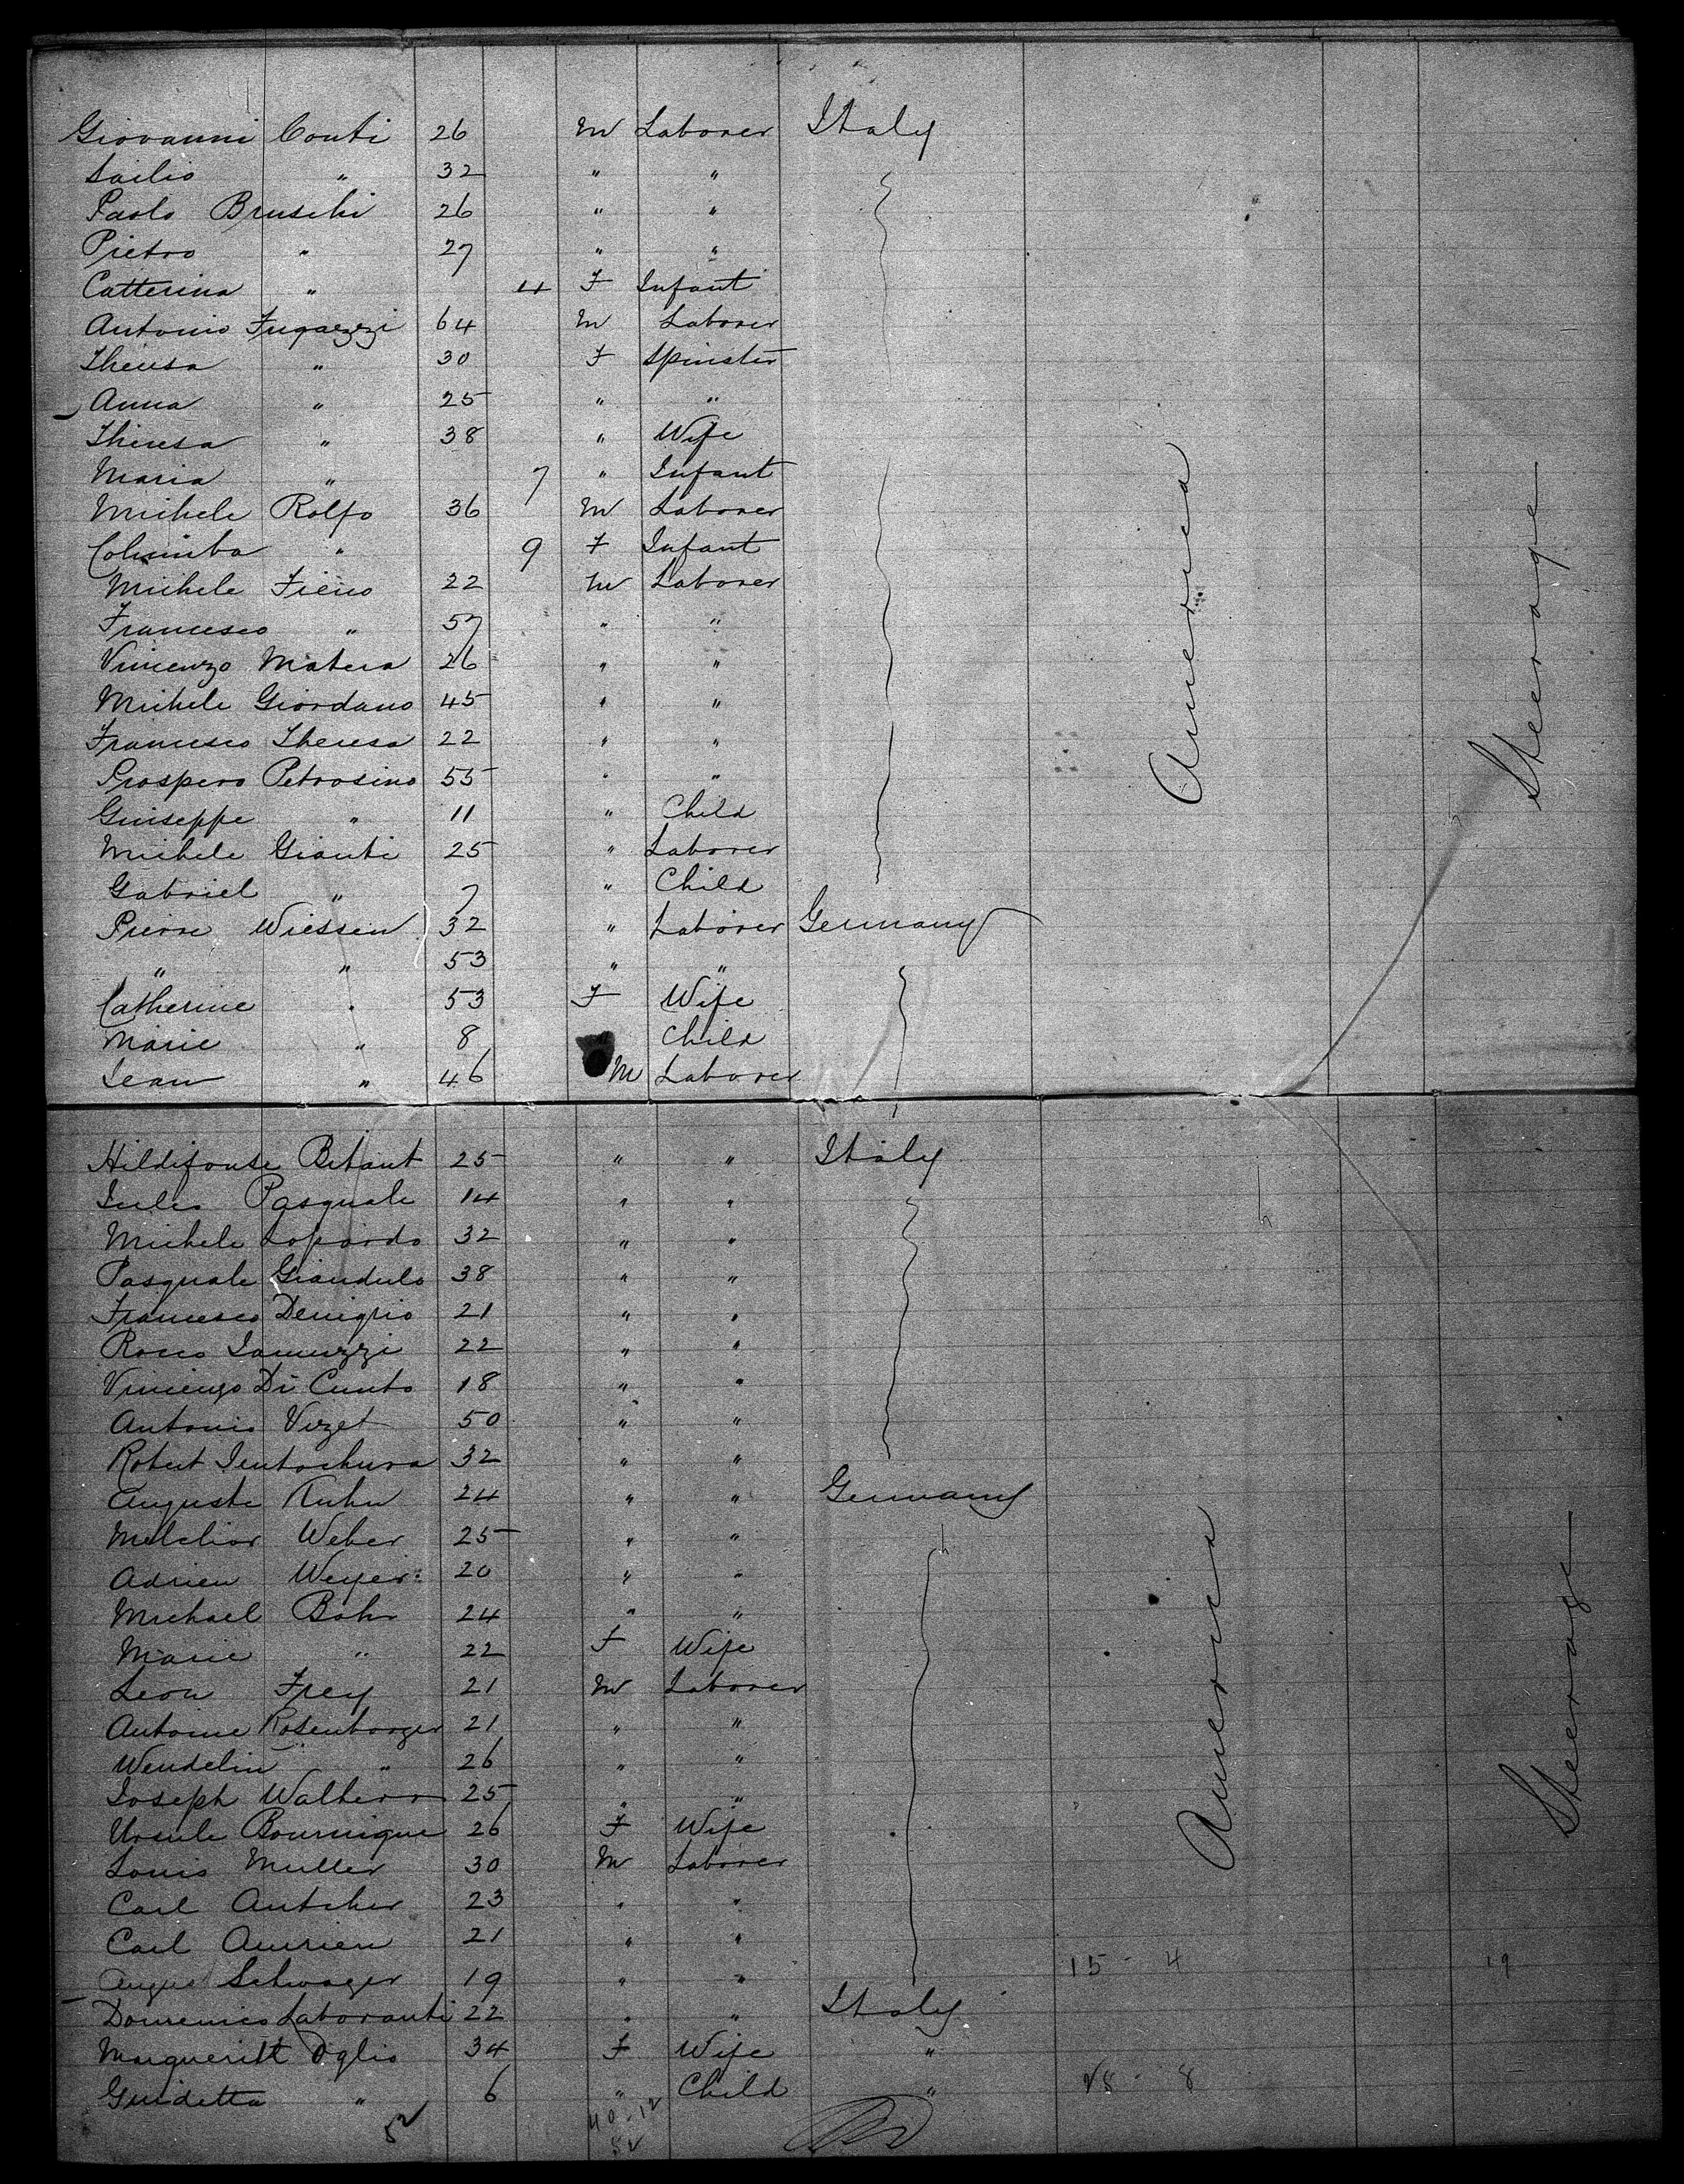 Giovanni Conti 26 M Laborer Italy
Sailio " 32 " "
Paolo Bruschi 26 " "
Pietro " 27 " "
Catterina " 4 F Infant
Antonio Fugazzi 64 M Laborer
Theresa " 30 F Spinster
Anna " 25 " "
Theresa " 38 " Wife
Maria " 7 " Infant
Michele Rolfo 36 M Laborer
Columba " 9 F Infant
Michele Fieno 22 M Laborer
Francesco " 57 " "
Vincenzo Matera 26 " "
Michele Giordano 45 " "
Francesco Theresa 22 " "
Prospero Petrosino 55 " "
Giuseppe " 11 " Child
Michele Gianti 25 " Laborer
Gabriel " 7 " Child
Pierre Wiessen 32 " Laborer Germany
" " 53 " "
Catherine " 53 F Wife
Marie " 8 Child
Jean " 46 M Laborer
America
Steerage
Hildifonse Betant 25 " " Italy
Jules Pasquale 14 " "
Michele Lopardo 32 " "
Pasquale Giandulo 38 " "
Francesco Denigrio 21 " "
Rocco Januzzi 22 " "
Vincenzo Di Cunto 18 " "
Antonio Vizet 50 " "
Robert 32 " "
Auguste Kuhn 24 " " Germany
Melchior Weber 25 " "
Adrien Weyer 20 " "
Michael Bohr 24 " "
Marie " 22 F Wife
Leon Frey 21 M Laborer
Antoine Rosenborger 21 " "
Wendelin " 26 " "
Joseph Walherr 25 " "
Ursule Bournique 26 F Wife
Louis Muller 30 M Laborer
Carl Autcher 23 " "
Carl Aurien 21 " "
August Schwager 19 " "
15 - 4 19
Domenico Laboranti 22 " " Italy
Margueritt Oglio 34 F Wife "
Guidetta " 6 " Child "
America
Steerage
40-12
52